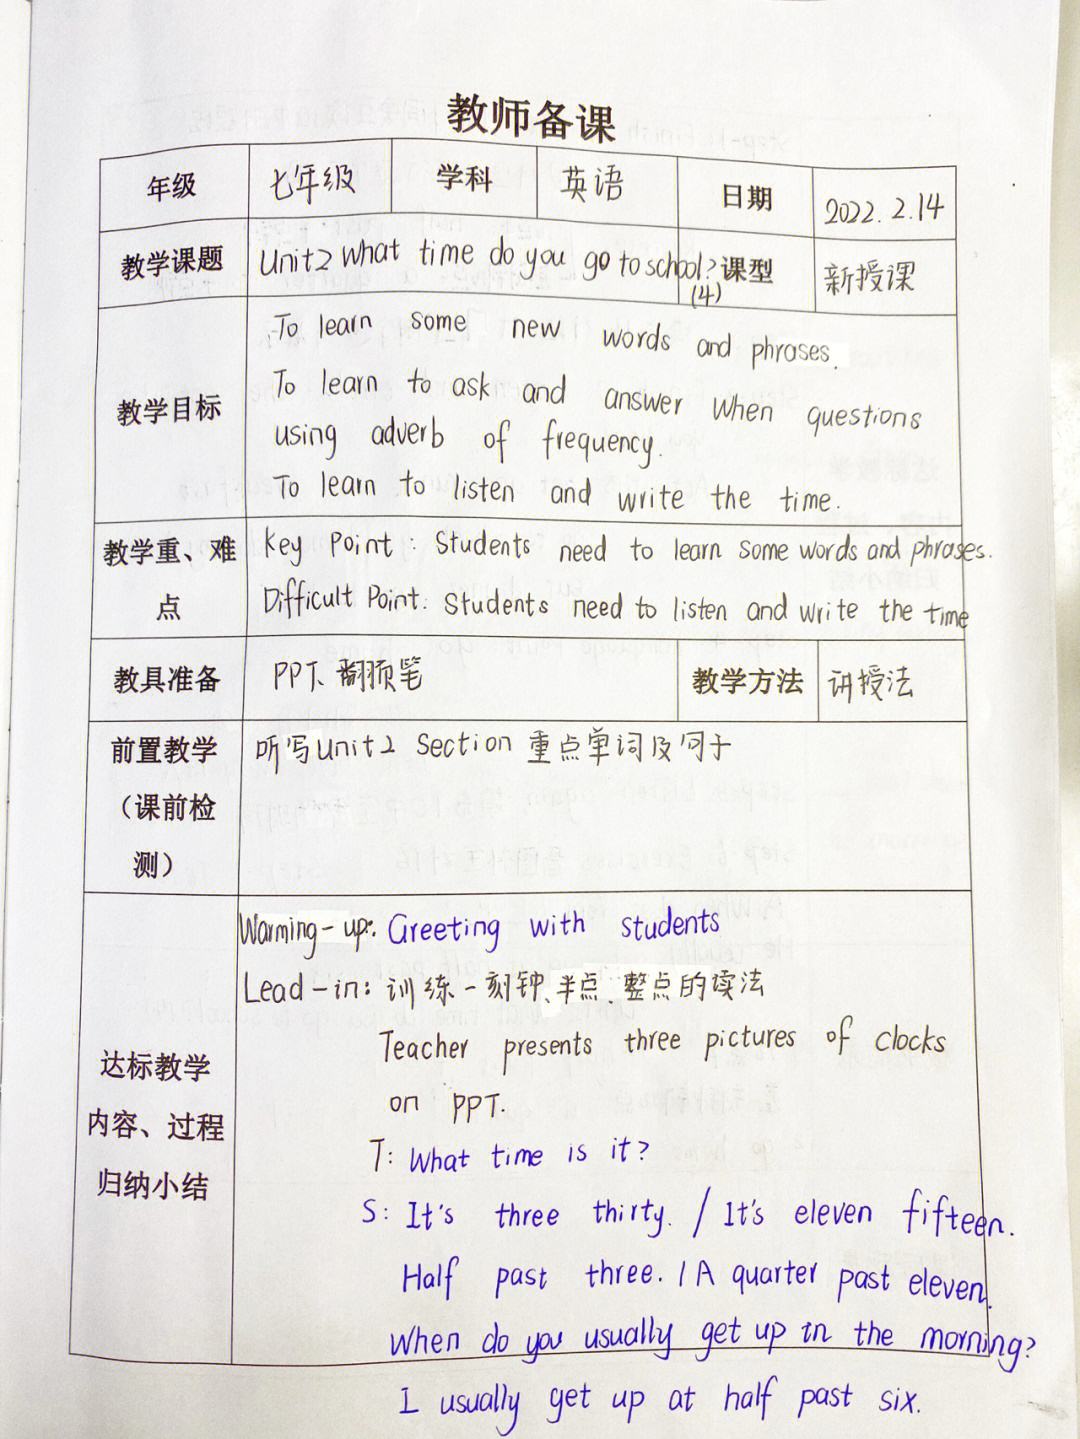 教师备课
年级 七年级 学科 英语 日期 2022.2.14
教学课题 Unit2 What time do you go to school? (4) 课型 新授课
教学目标
To learn some new words and phrases.
To learn to ask and answer when questions
using adverb of frequency.
To learn to listen and write the time.
教学重、难点
Key Point: Students need to learn some words and phrases.
Difficult Point: Students need to listen and write the time
教具准备 PPT、翻页笔 教学方法 讲授法
前置教学
（课前检
测）
听写Unit2 Section 重点单词及句子
达标教学
内容、过程
归纳小结
Warming-up: Greeting with students
Lead-in: 训练一刻钟、半点、整点的读法
Teacher presents three pictures of clocks
on PPT.
T: What time is it?
S: It's three thirty. / It's eleven fifteen.
Half past three. / A quarter past eleven.
When do you usually get up in the morning?
I usually get up at half past six.